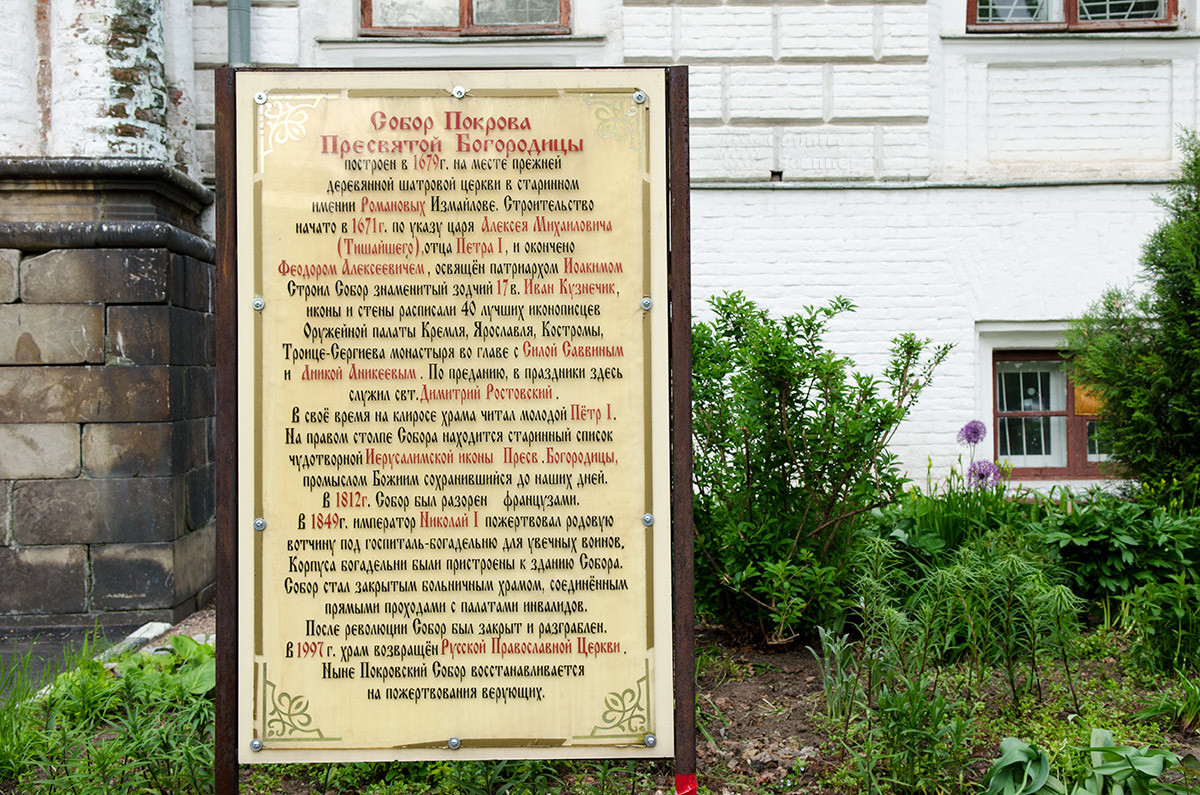 Собор Покрова
Пресвятой Богородицы
построен в 1679г. на месте прежней
деревянной шатровой церкви в старинном
имении Романовых Измайлове. Строительство
начато в 1671г. по указу царя Алексея Михаиловича
(Тишайшего),отца Петра I, и окончено
Феодором Алексеевичем, освящён патриархом Иоакимом
Строил Собор знаменитый зодчий 17в. Иван Кузнечик,
иконы и стены расписали 40 лучших иконописцев
Оружейной палаты Кремля, Ярославля, Костромы,
Троице-Сергиева монастыря во главе с Силой Саввиным
и Аникой Аникеевым. По преданию, в праздники здесь
служил свт.Димитрий Ростовский.
В своё время на клиросе храма читал молодой Пётр I.
На правом столпе Собора находится старинный список
чудотворной Иерусалимской иконы Пресв.Богородицы,
промыслом Божиим сохранившийся до наших дней.
В 1812г. Собор был разорен французами.
В 1849г. император Николай I пожертвовал родовую
вотчину под госпиталь-богадельню для увечных воинов.
Корпуса богадельни были пристроены к зданию Собора.
Собор стал закрытым больничным храмом, соединённым
прямыми проходами с палатами инвалидов.
После революции Собор был закрыт и разграблен.
В 1997г. храм возвращён Русской Православной Церкви.
Ныне Покровский Собор восстанавливается
на пожертвования верующих.